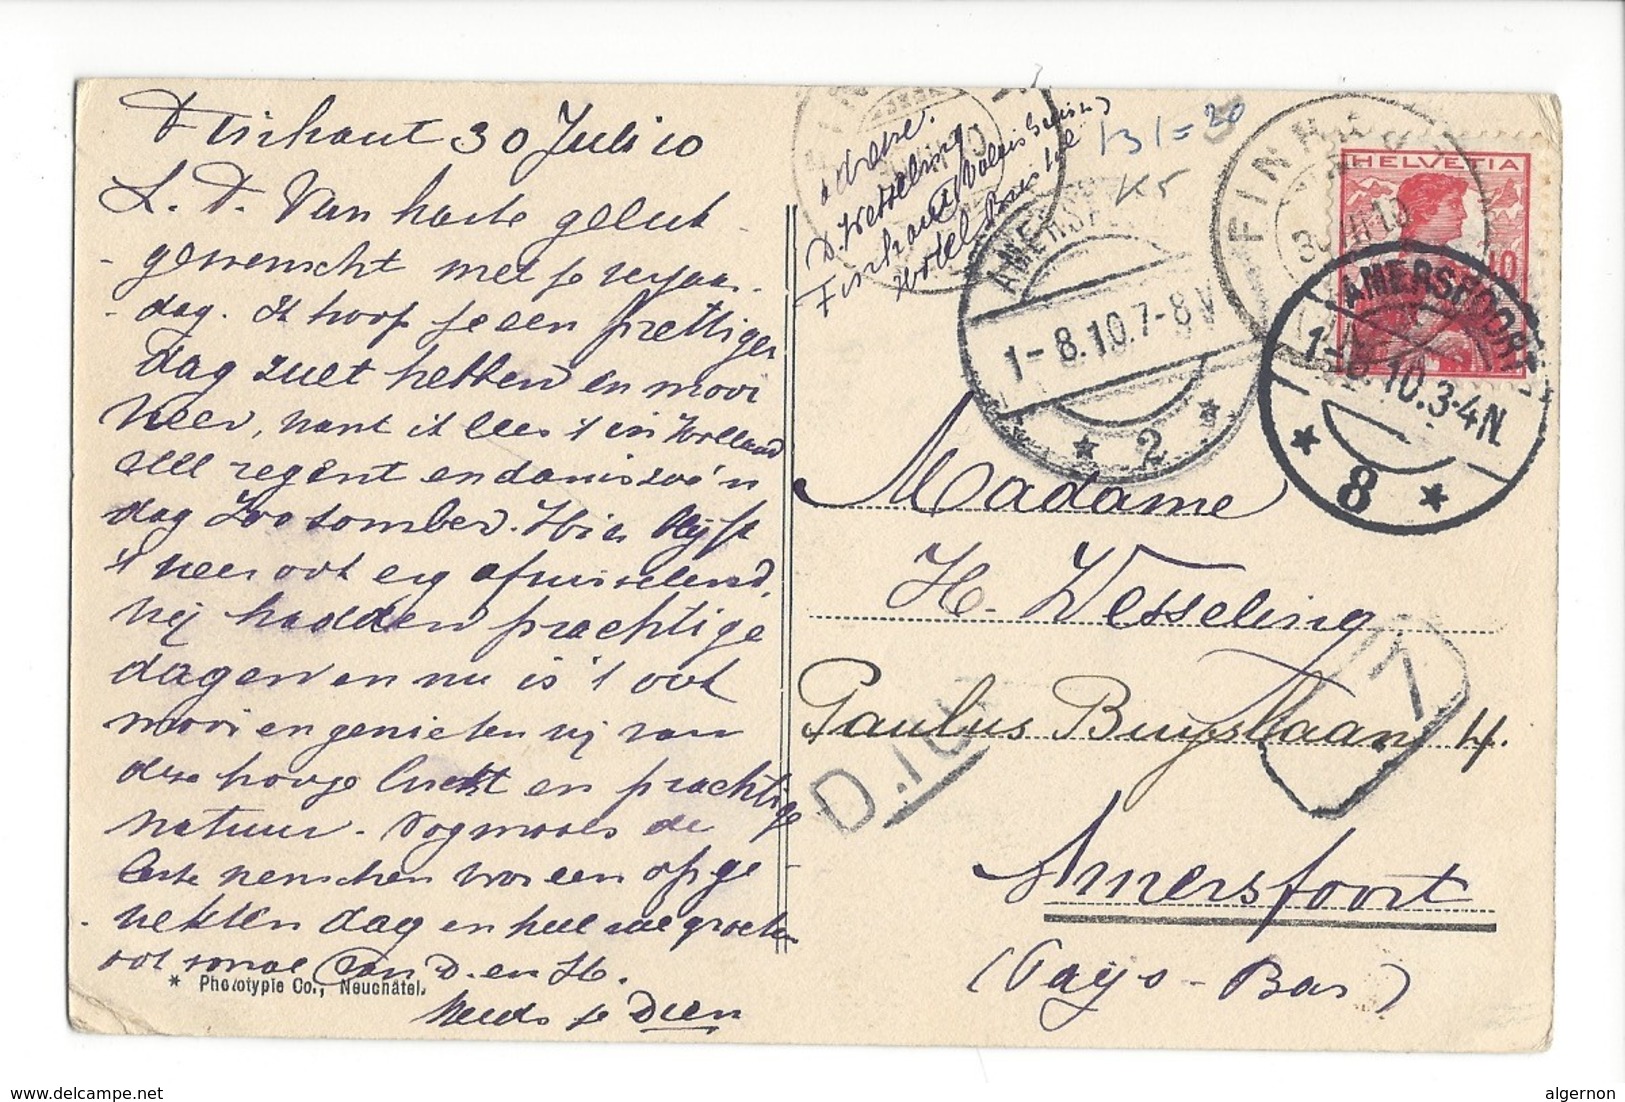 Finhaut 30 Juli 10
L. D. Van harte geluk
gewenscht met je verjaar-
dag. Ik hoop je een prettigen
dag zult hebben en mooi
weer, want ik lees 't in Holland
regent en dan is zoo'n
dag zoo somber. Hier blijft
't weer ook erg afwisselend,
wij hadden prachtige
dagen en nu is 't ook
mooi en genieten wij van
deze hooge lucht en prachtige
natuur. Nogmaals de
beste wenschen voor een opge-
wekten dag en heel veel groeten
ook van D. en H.
steeds je Dien
* Phototypie Co., Neuchâtel.
adres:
D. Wesseling
Finhaut (Valais Suisse)
Hotel Bristol
131=30
K5
FINHAUT
AMERSFOORT
1-8.10.7-8V
2
HELVETIA
10
AMERSFOORT
1-8.10.3-4N
8
Madame
H. Wesseling
Paulus Buyslaan 4.
7
Amersfoort
(Pays-Bas)
www.delcampe.net
algernon